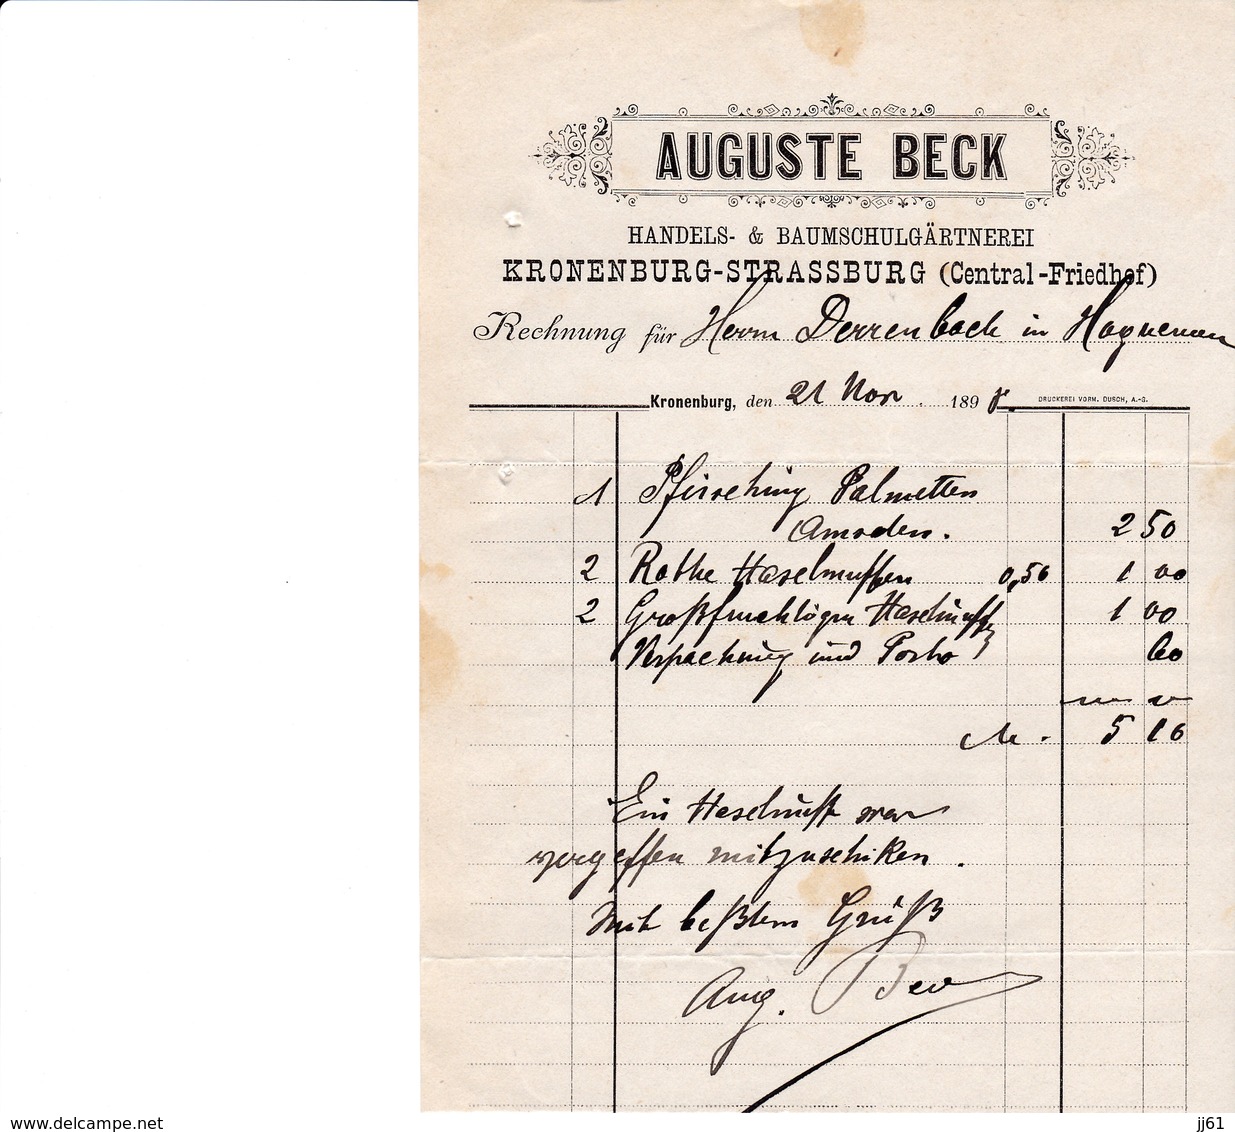 AUGUSTE BECK
HANDELS- & BAUMSCHULGÄRTNEREI
KRONENBURG-STRASSBURG (Central-Friedhof)
Rechnung für Herrn Derrenbach in Haguenau
Kronenburg, den 21 Nov. 1898.
DRUCKEREI VORM. DUSCH, A.-G.
1 Pfirsching Palmetten
Amsden. 2 50
2 Rothe Haselnussen 0,50 1 00
2 Großfruchtigen Haselnussen 1 00
Verpackung und Porto 60
M. 5 10
Ein Haselnuss war
vergessen mitzuschiken.
Mit beßtem Gruß
Aug. Beck
www.delcampe.net
jj61